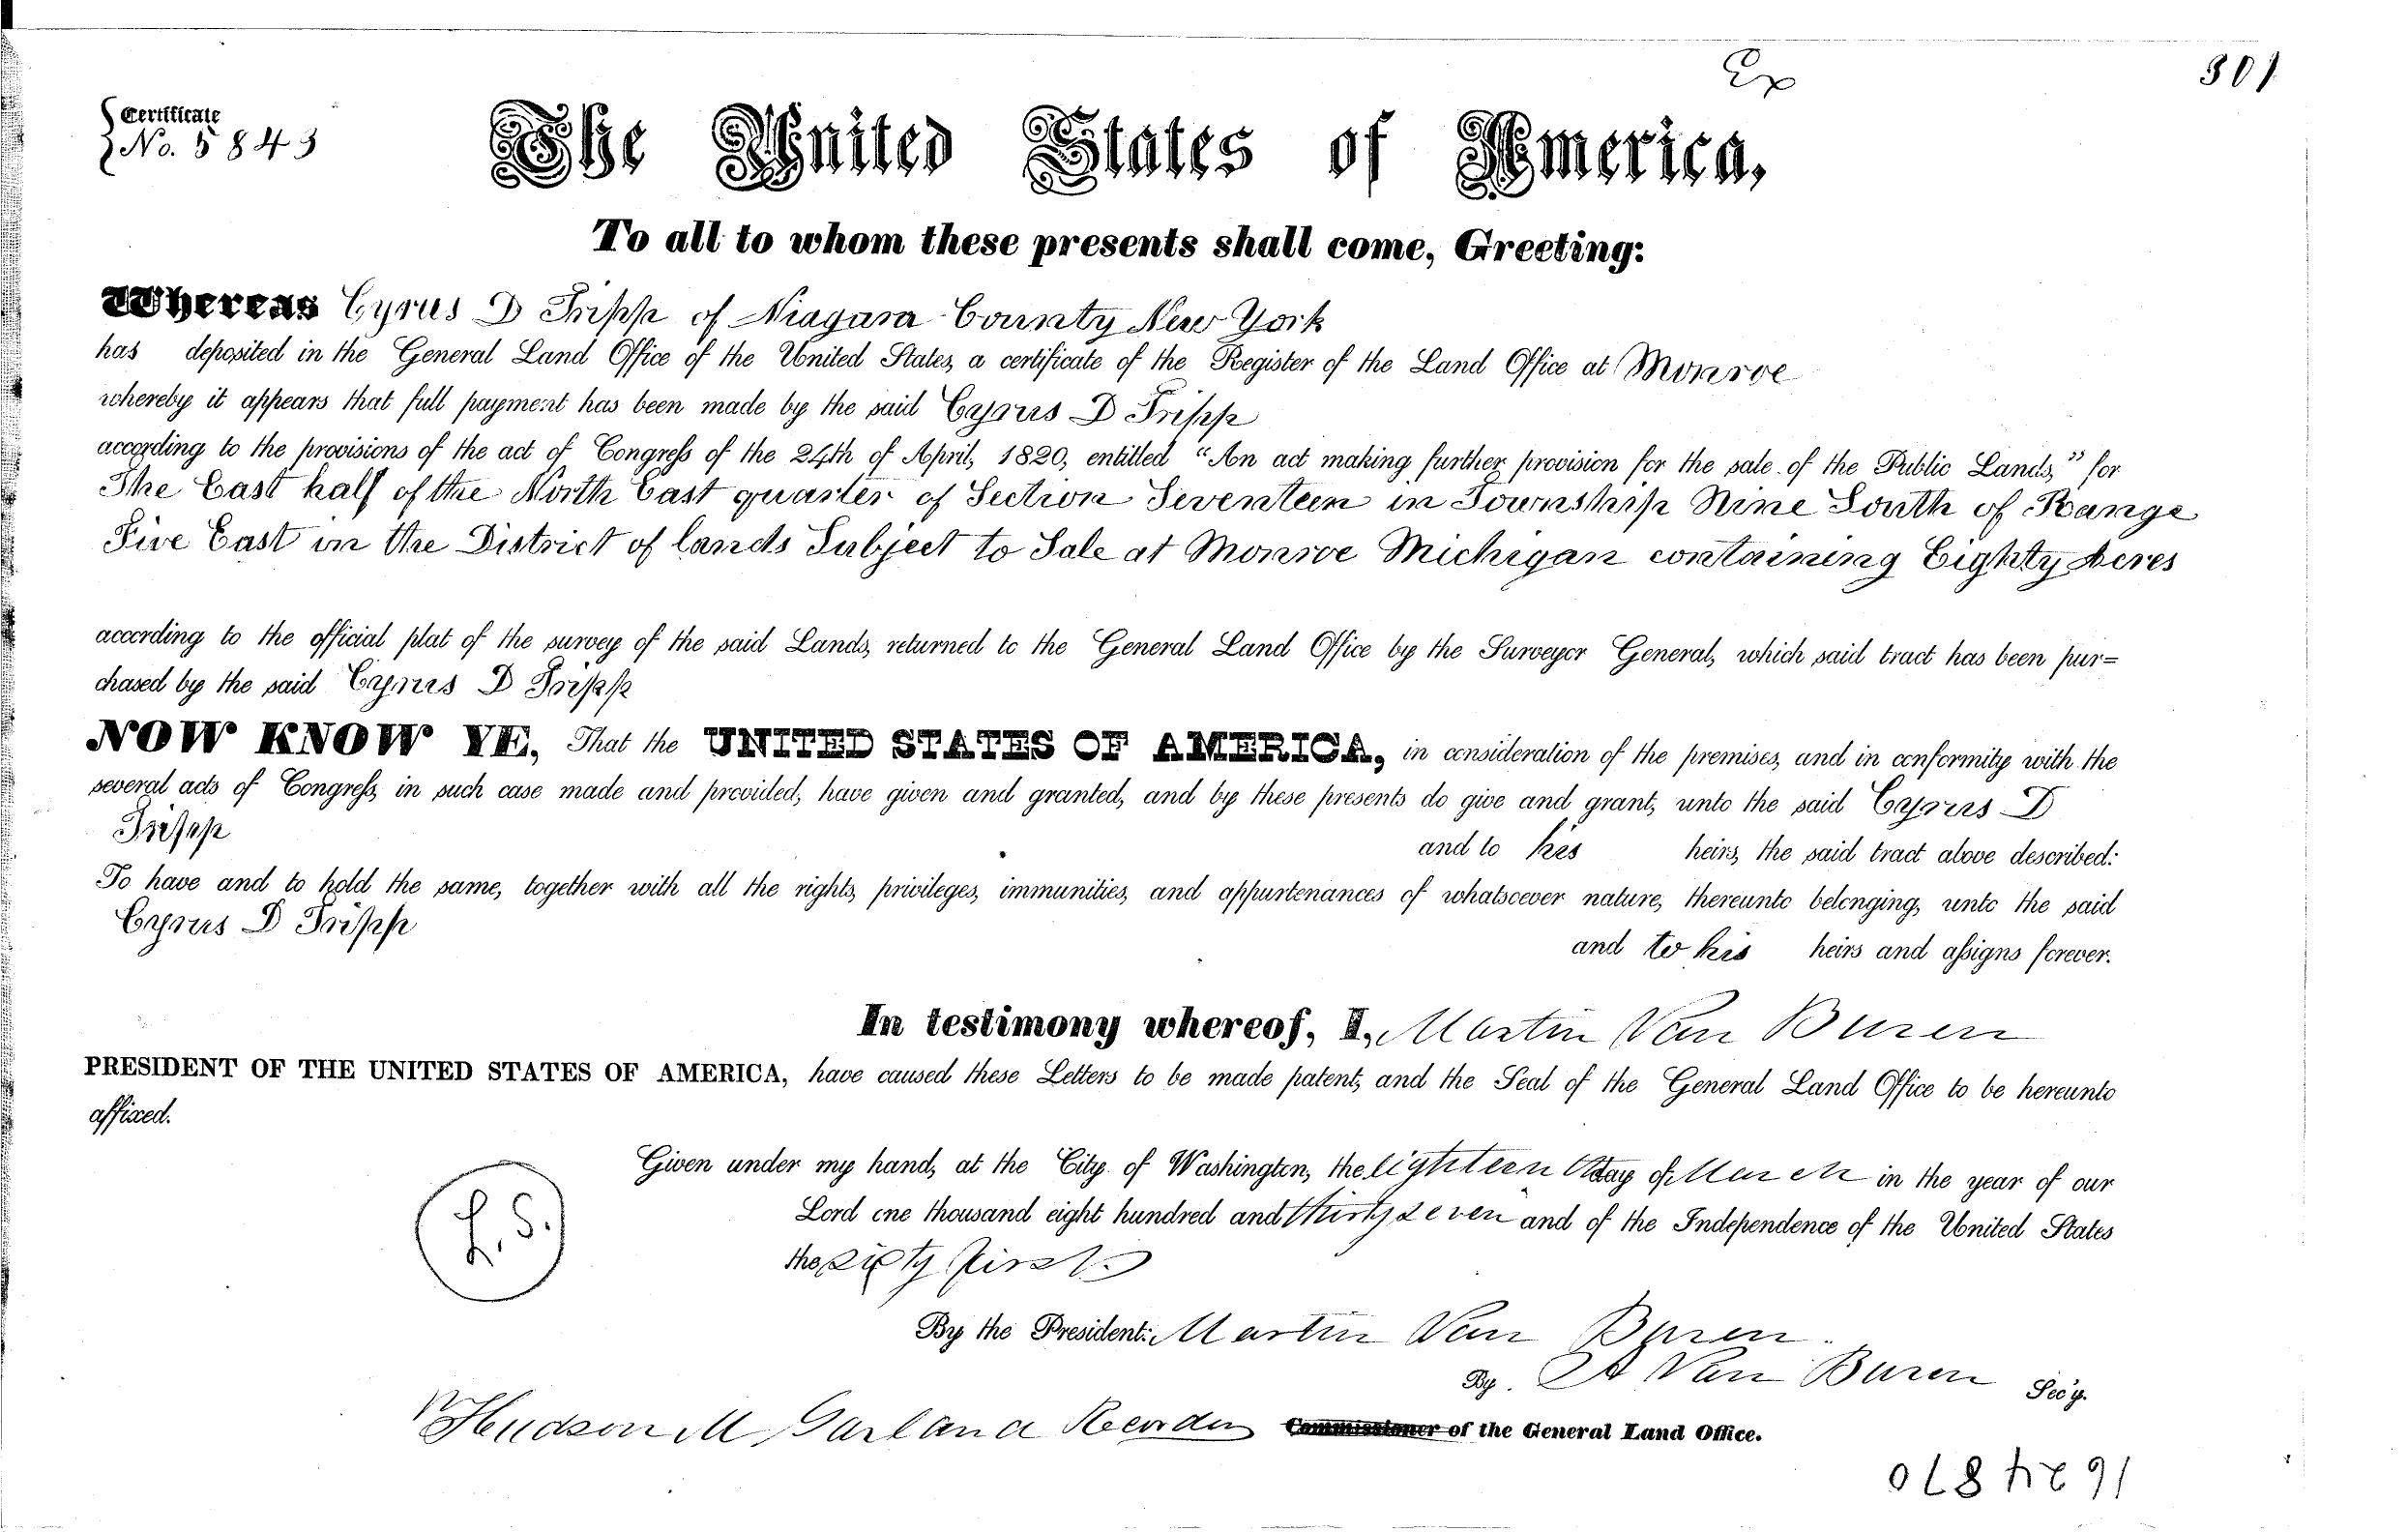 Ex
301
Certificate
No. 5843
The United States of America,
To all to whom these presents shall come, Greeting:
Whereas Cyrus D Tripp of Niagara County New York
has deposited in the General Land Office of the United States, a certificate of the Register of the Land Office at Monroe
whereby it appears that full payment has been made by the said Cyrus D Tripp
according to the provisions of the act of Congress of the 24th of April, 1820, entitled "An act making further provision for the sale of the Public Lands," for
The East half of the North East quarter of Section Seventeen in Township Nine South of Range
Five East in the District of lands Subject to Sale at Monroe Michigan containing Eighty Acres
according to the official plat of the survey of the said Lands, returned to the General Land Office by the Surveyor General, which said tract has been pur=
chased by the said Cyrus D Tripp
NOW KNOW YE, That the UNITED STATES OF AMERICA, in consideration of the premises, and in conformity with the
several acts of Congress, in such case made and provided, have given and granted, and by these presents do give and grant, unto the said Cyrus D
Tripp
and to his heirs, the said tract above described:
To have and to hold the same, together with all the rights, privileges, immunities, and appurtenances of whatsoever nature, thereunto belonging, unto the said
Cyrus D Tripp
and to his heirs and assigns forever.
In testimony whereof, I, Martin Van Buren
PRESIDENT OF THE UNITED STATES OF AMERICA, have caused these Letters to be made patent, and the Seal of the General Land Office to be hereunto
affixed.
Given under my hand, at the City of Washington, the eighteenth day of March in the year of our
Lord one thousand eight hundred and thirty seven and of the Independence of the United States
the sixty first
L.S.
By the President: Martin Van Buren
By A Van Buren Sec'y.
Hudson M. Garland Recorder Commissioner of the General Land Office.
1624870